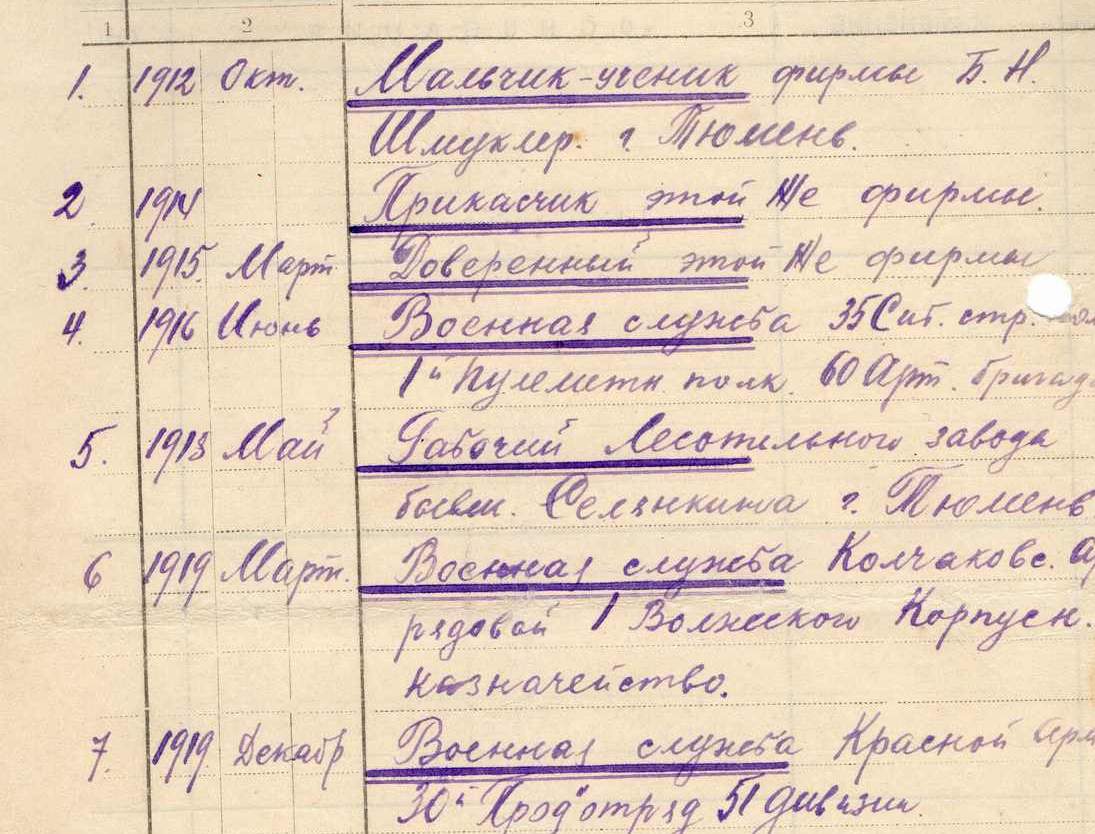 1 2 3
1. 1912 Окт. Мальчик-ученик фирмы Б. Н.
Шмуклер. г Тюмень.
2. 1914 Прикасчик этой же фирмы.
3. 1915. Март Доверенный этой же фирмы
4. 1916 Июнь Военная служба 35 Сиб. стр.
1й Пулеметн. полк. 60 Арт. бригада
5. 1918 Май Рабочий Лесопильного завода
бывш. Селянкина г. Тюмень
6 1919 Март. Военная служба Колчаковс. Ар
рядовой 1 Волжского Корпусн.
казначейство.
7. 1919 Декабр Военная служба Красной Арм
30й Продотряд 51 дивизии.